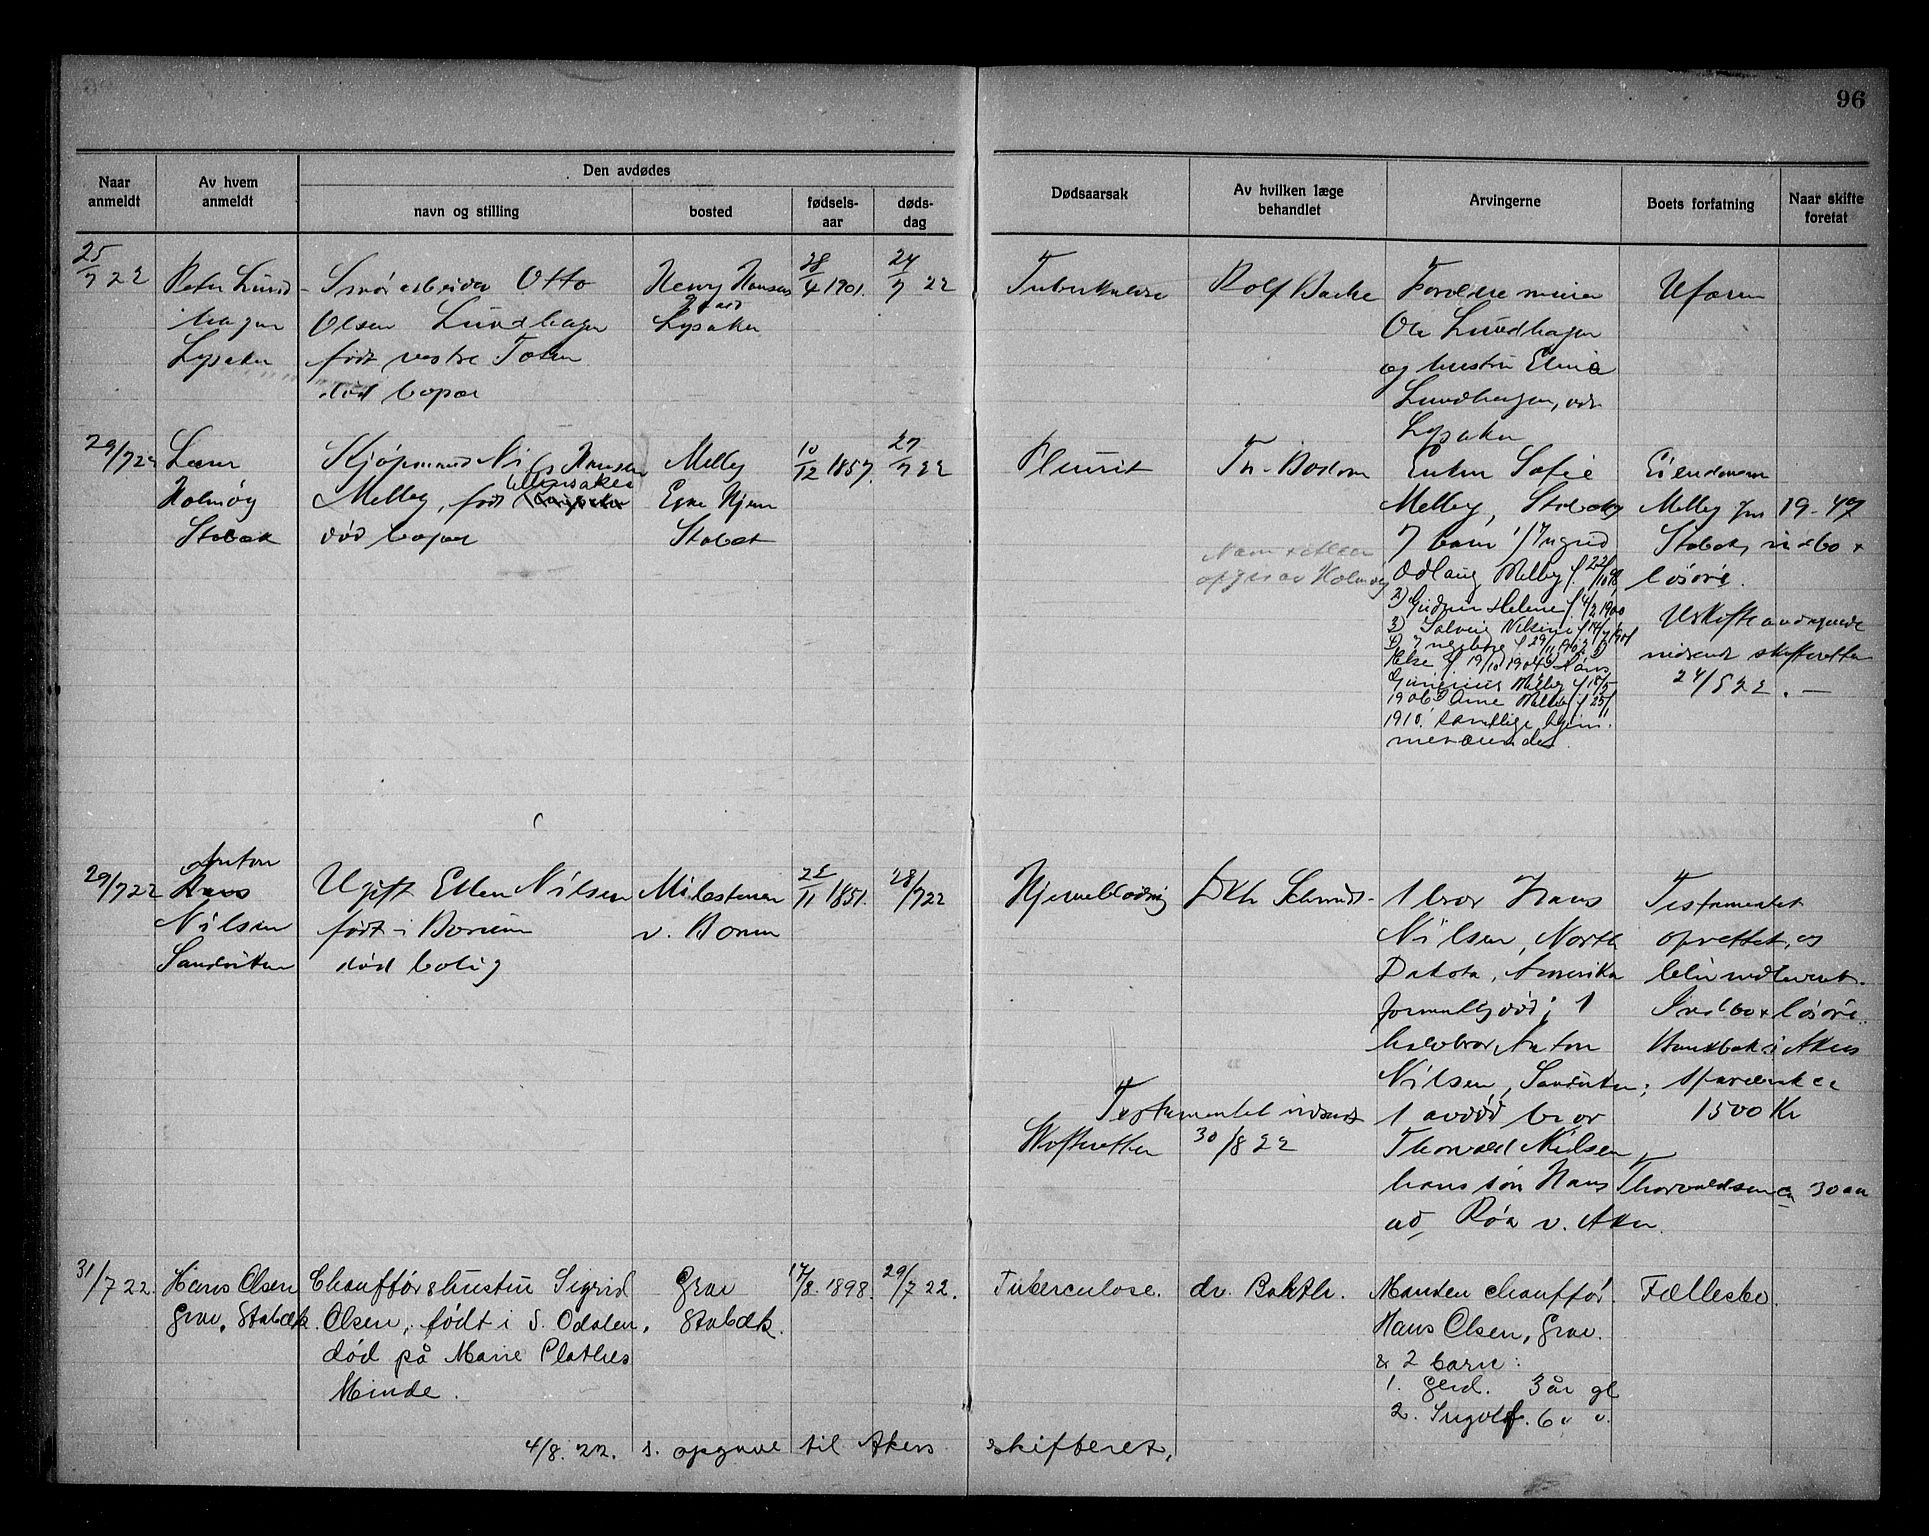 96
Naar anmeldt
Av hvem anmeldt
Den avdødes
navn og stilling
bosted
fødsels-aar
døds-dag
Dødsaarsak
Av hvilken læge behandlet
Arvingerne
Boets forfatning
Naar skifte foretat
25/7 22
Peter Lund-
hagen
Lysaker
Otto
Olsen Lundhagen
født vestre Toten
død bopæl
Henry Hansens
gaard
Lysaker
28/4 1901.
24/7 22
Tuberkulose
Rolf Backe
Forældre
Ole Lundhagen
og hustru
Lundhagen, adr
Lysaker
29/7 22
Lærer
Holmøy
Stabæk
Kjøpmand Nils Hansen
Melby, født Ullensaker
død bopæl
Melby
Eget Hjem
Stabæk
10/12 1857.
27/7 22
Pleurit
Enken Sofie
Melby, Stabæk
7 barn 1) Ingrid
Odlaug Melby f. 22/10 98,
2) Gudrun Helene f 4/2 1900
3) Solveig
Else f 19/10 1904
1906 Arne Melby f 25/11
1910. samtlige hjem.
meværender.
opgis av Holmøy
Eiendommen
Melby gnr 19-47
Stabæk, indbo +
løsøre.
Uskifteandragende
indsendt skifteretten
24/8 22. —
29/7 22
Anton
Hans
Nilsen
Sandviken
Ugift Ellen Nilsen
født i Bærum
død bolig
v. Bærum
11 1851.
28/7 22
Hjerneblødning
1 bror Hans
Nilsen, North
Dakota, Amerika
halvbror Anton
Nilsen, Sandviken;
1 avdød bror
Thorvald Nilsen,
hans søn Hans Thorvaldsen ca 30 aar
ad. Røa v. Aker.
Testamentet
oprettet, og
blir indleveret.
Indbo + løsøre.
Bankbok i Akers
Sparebank ca
1500 Kr
Testamentet indsendt
Skifteretten 30/8 22
31/7 22.
Hans Olsen
Grav, Stabæk.
Chaufførshustru Sigrid
Olsen, født i S. Odalen,
død på Marie Plathes
Minde.
Grav
Stabæk.
17/8. 1898.
29/7 22.
Tuberculose.
dr.
Manden chauffør.
Hans Olsen, Grav.
& 2 barn:
1. Gerd. 3 år gl
2. Ingolf. 6 " ".
Fællesbo.
4/8. 22. s. opgave til Akers skifteret.